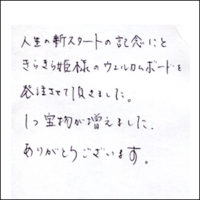 人生の新スタートの記念にと
きらきら姫様のウェルカムボードを
発注させて頂きました。
1つ宝物が増えました.
ありがとうございます。